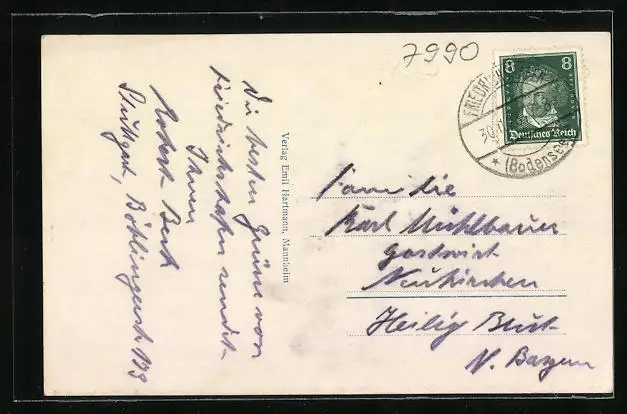 7990
8 8
Deutsches Reich
FRIEDRICHSHAFEN
30.
* (Bodensee)
Die besten Grüsse von
Friedrichshafen sendet
Ihnen
Robert Beck
Stuttgart, Böblingerstr 139
Verlag Emil Hartmann, Mannheim
Familie
Karl Mühlbauer
Gastwirt
Neukirchen
Heilig Blut
N. Bayern